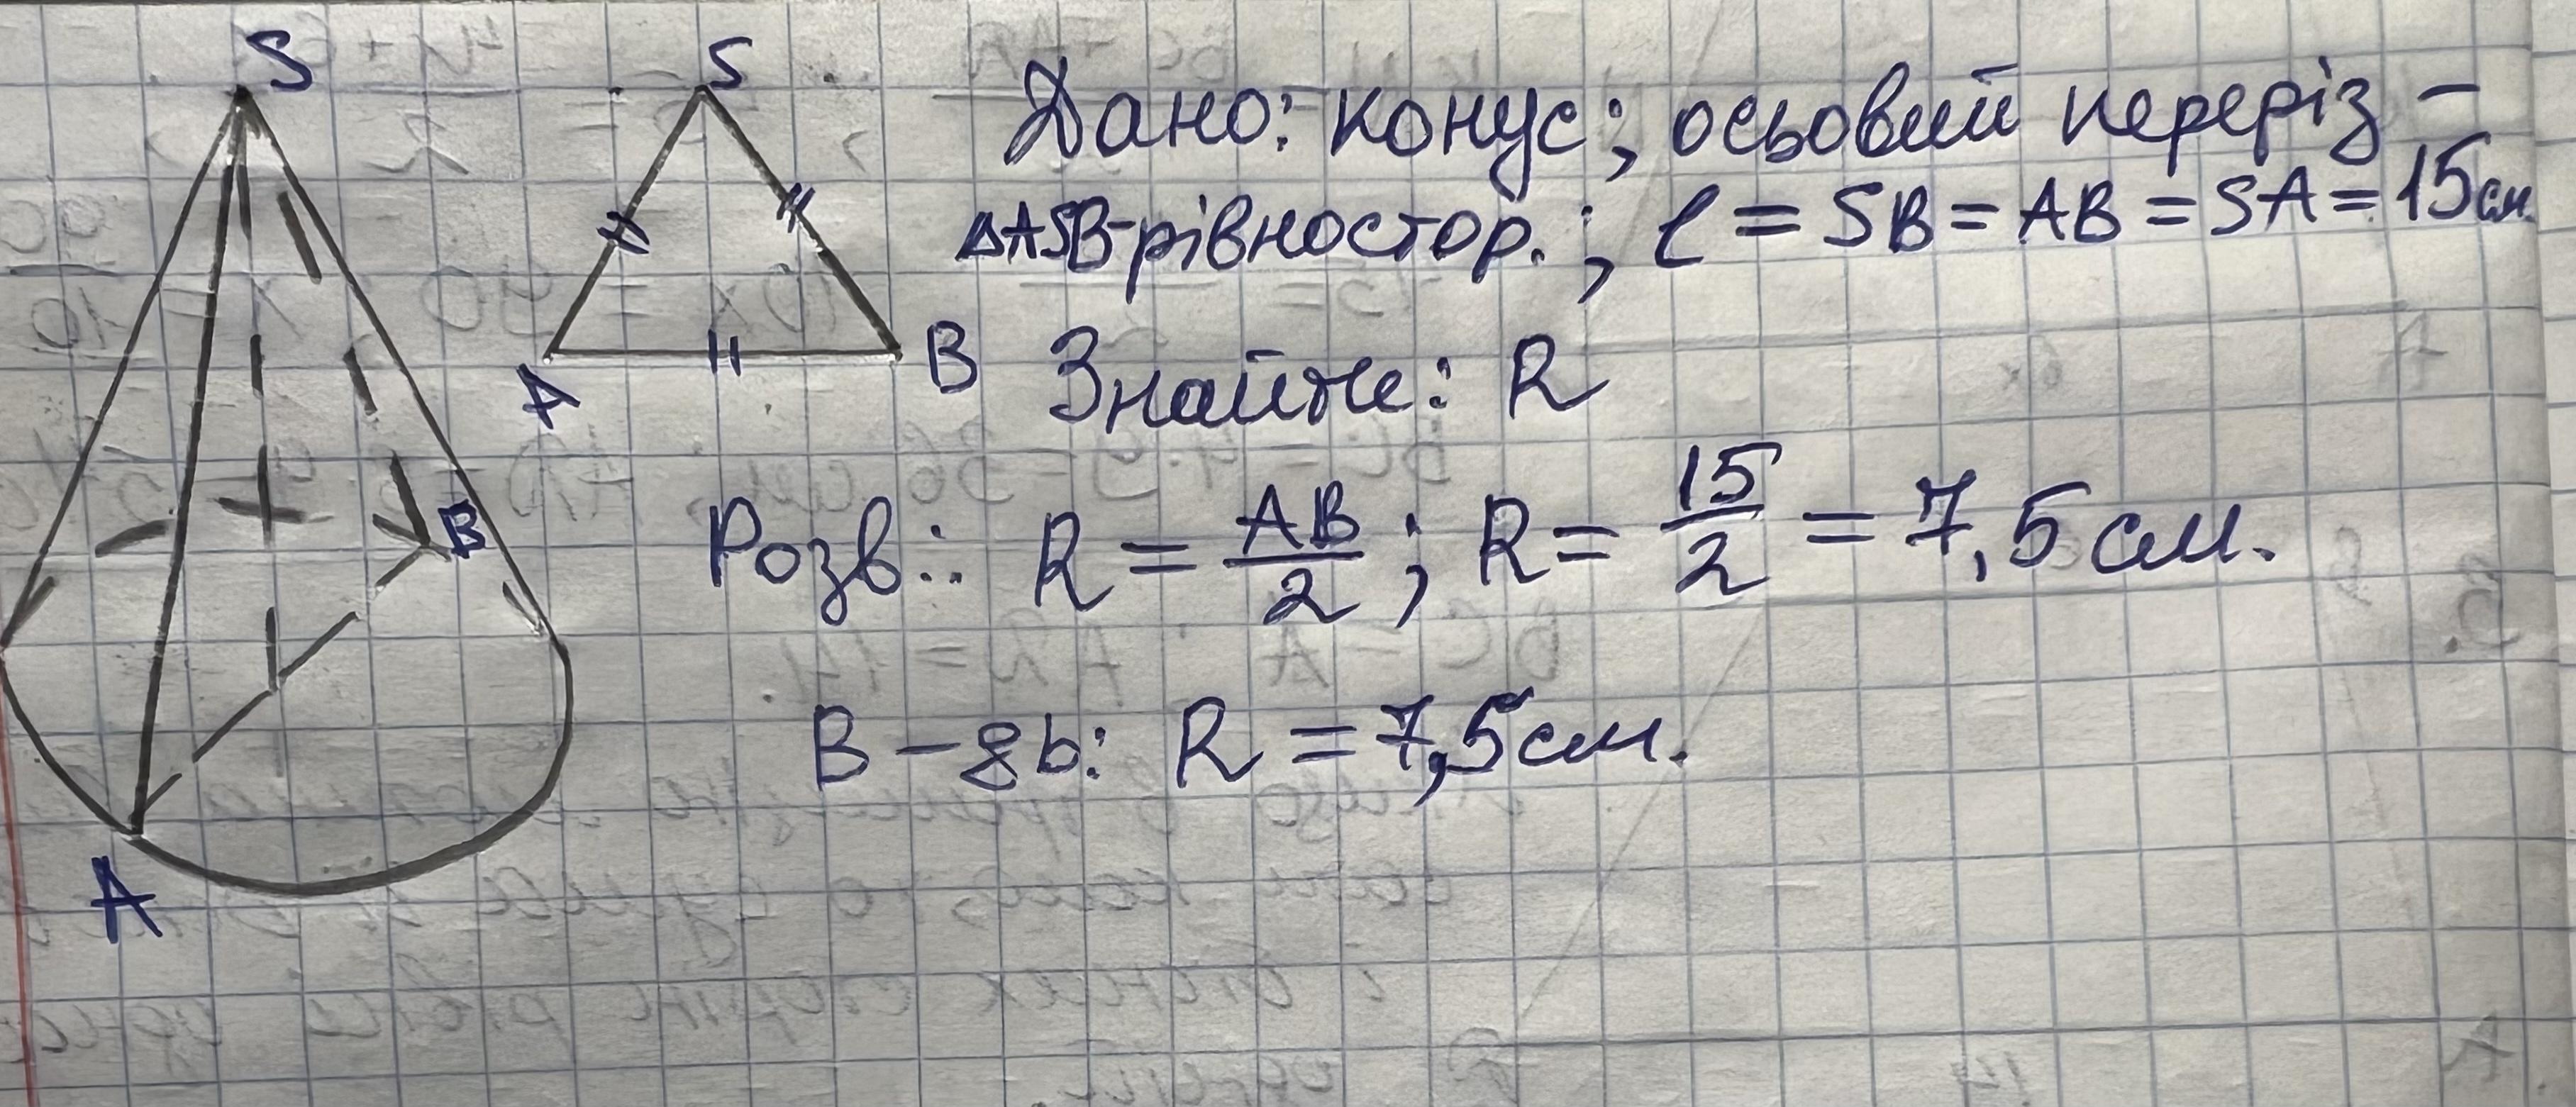 S
S
A
B
B
A
Дано: конус; осьовий переріз –
ΔASB-рівностор.; l = SB = AB = SA = 15 см.
Знайти: R
Розв.: R = AB/2; R = 15/2 = 7,5 см.
В – дь: R = 7,5 см.